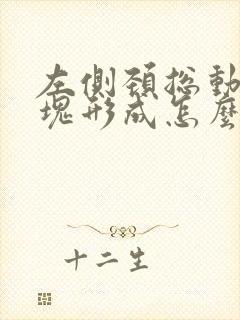 左側頸總動
塊形成怎麼
十二生